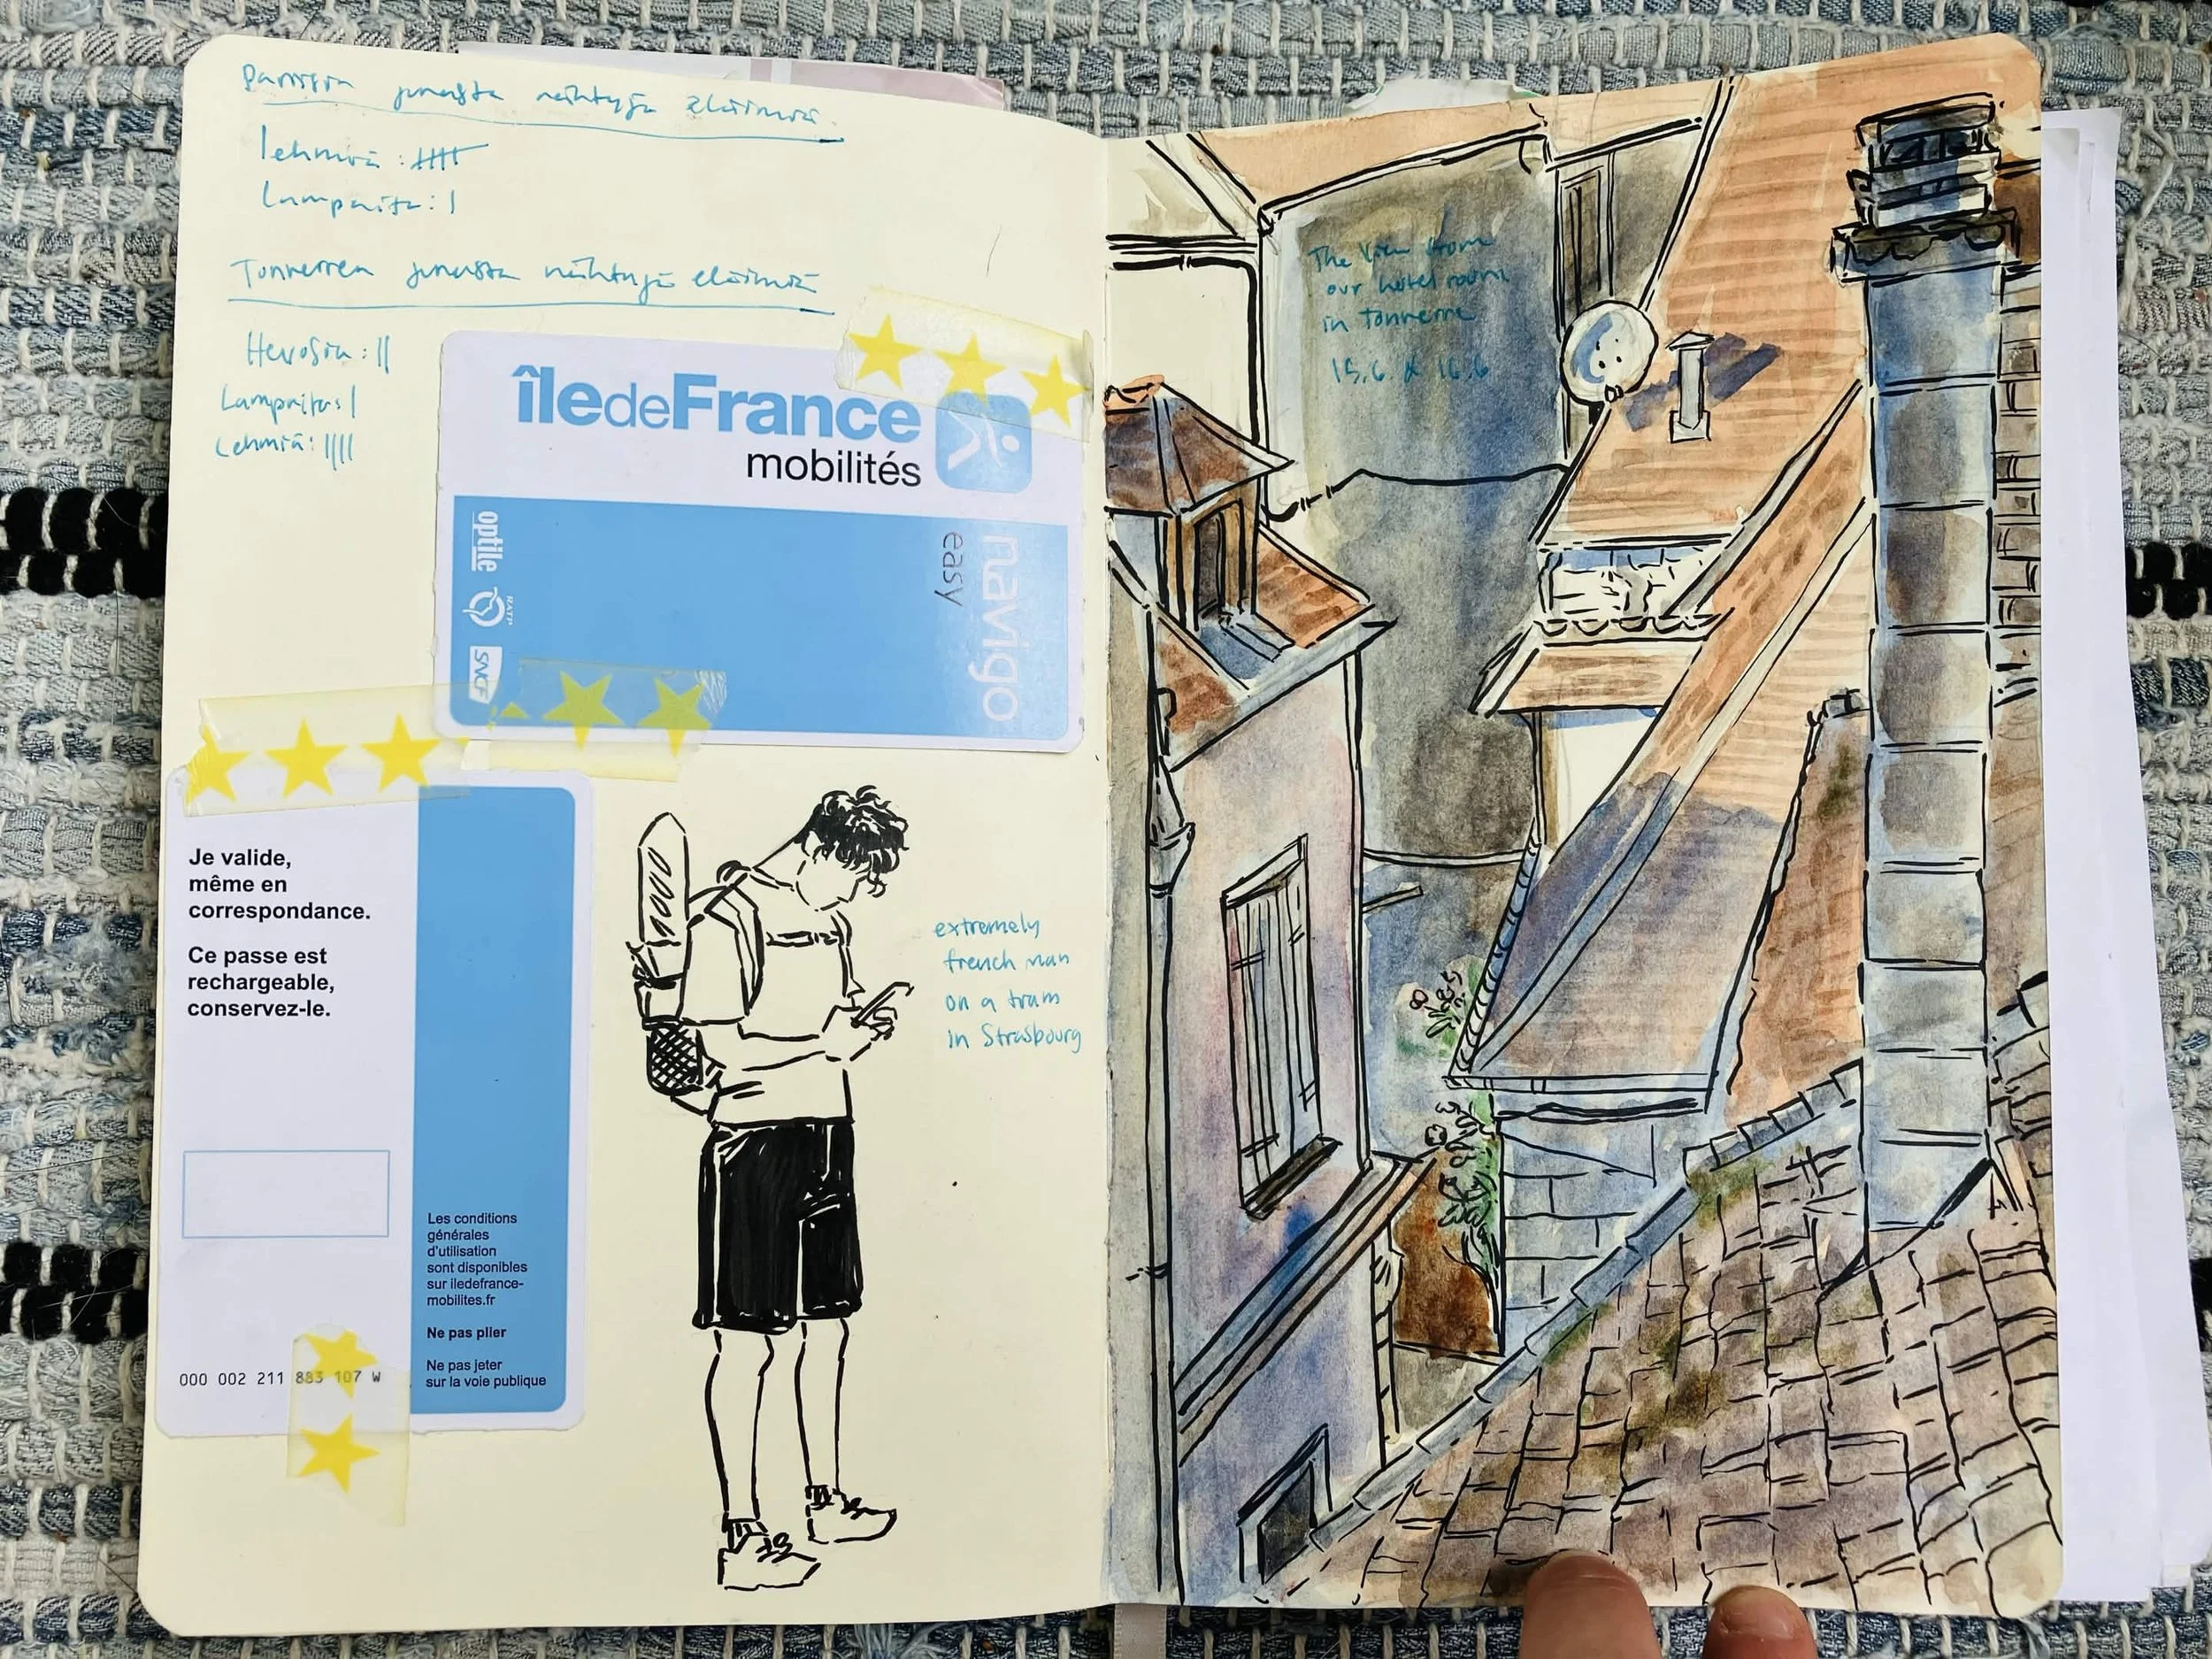 Pariisin junasta nähtyjä eläimiä
lehmiä: ||||
Lampaita: |
Tonnerren junasta nähtyjä eläimiä
Hevosia: ||
Lampaita: |
Lehmiä: ||||
îledeFrance
mobilités
navigo
easy
optile
RATP
SNCF
Je valide,
même en
correspondance.
Ce passe est
rechargeable,
conservez-le.
Les conditions
générales
d'utilisation
sont disponibles
sur iledefrance-
mobilites.fr
Ne pas plier
Ne pas jeter
sur la voie publique
000 002 211 883 107 W
extremely
french man
on a tram
in Strasbourg
The view from
our hotel room
in Tonnerre
15.6. & 16.6